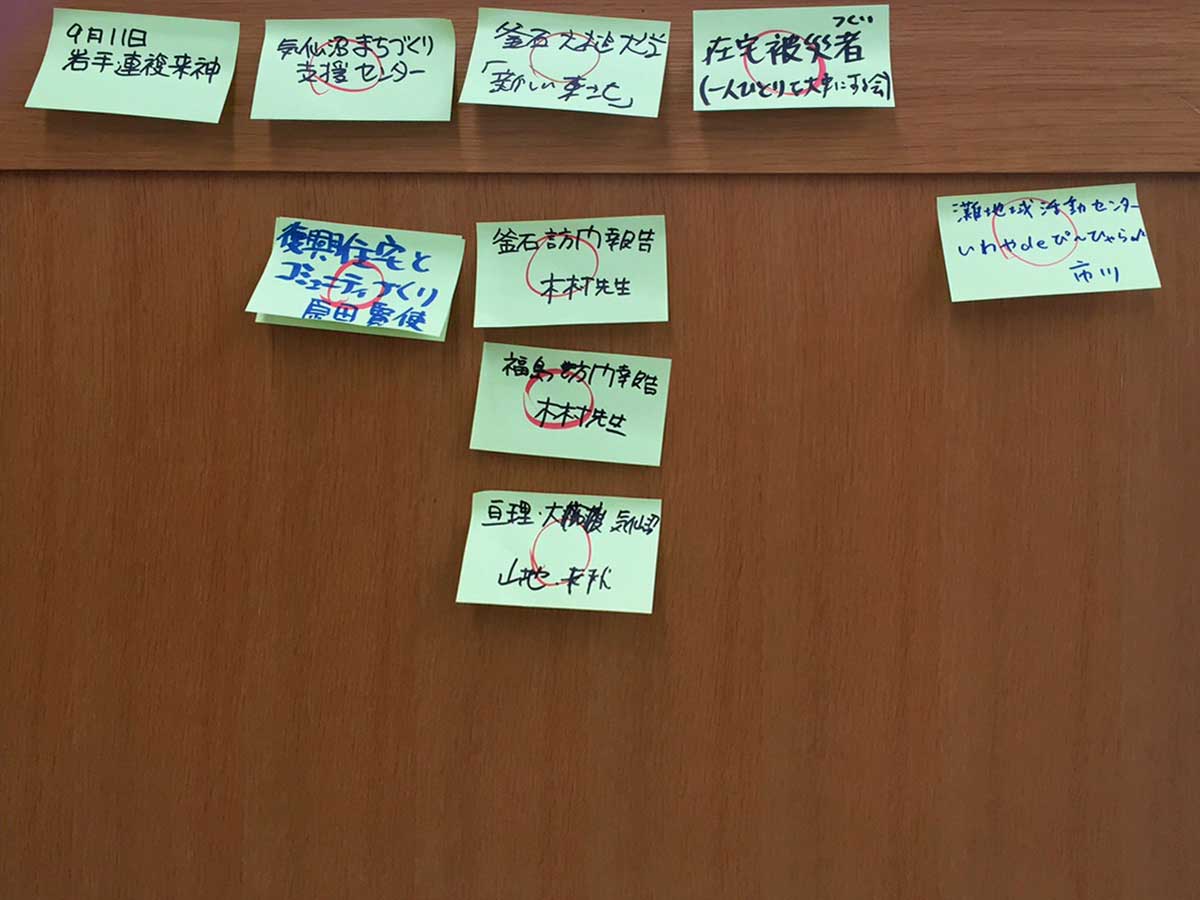 9月11日
岩手連復来神
気仙沼まちづくり
支援センター
釜石
「新しい東北」
つぐい
在宅被災者
(一人ひとりを大事にする会)
復興住宅と
コミュニティづくり
原田賢使
釜石訪問報告
木村先生
福島訪問報告
木村先生
亘理・大 気仙沼
山地・
灘地域活動センター
いわやdeぴ〜ひゃら♪
市川